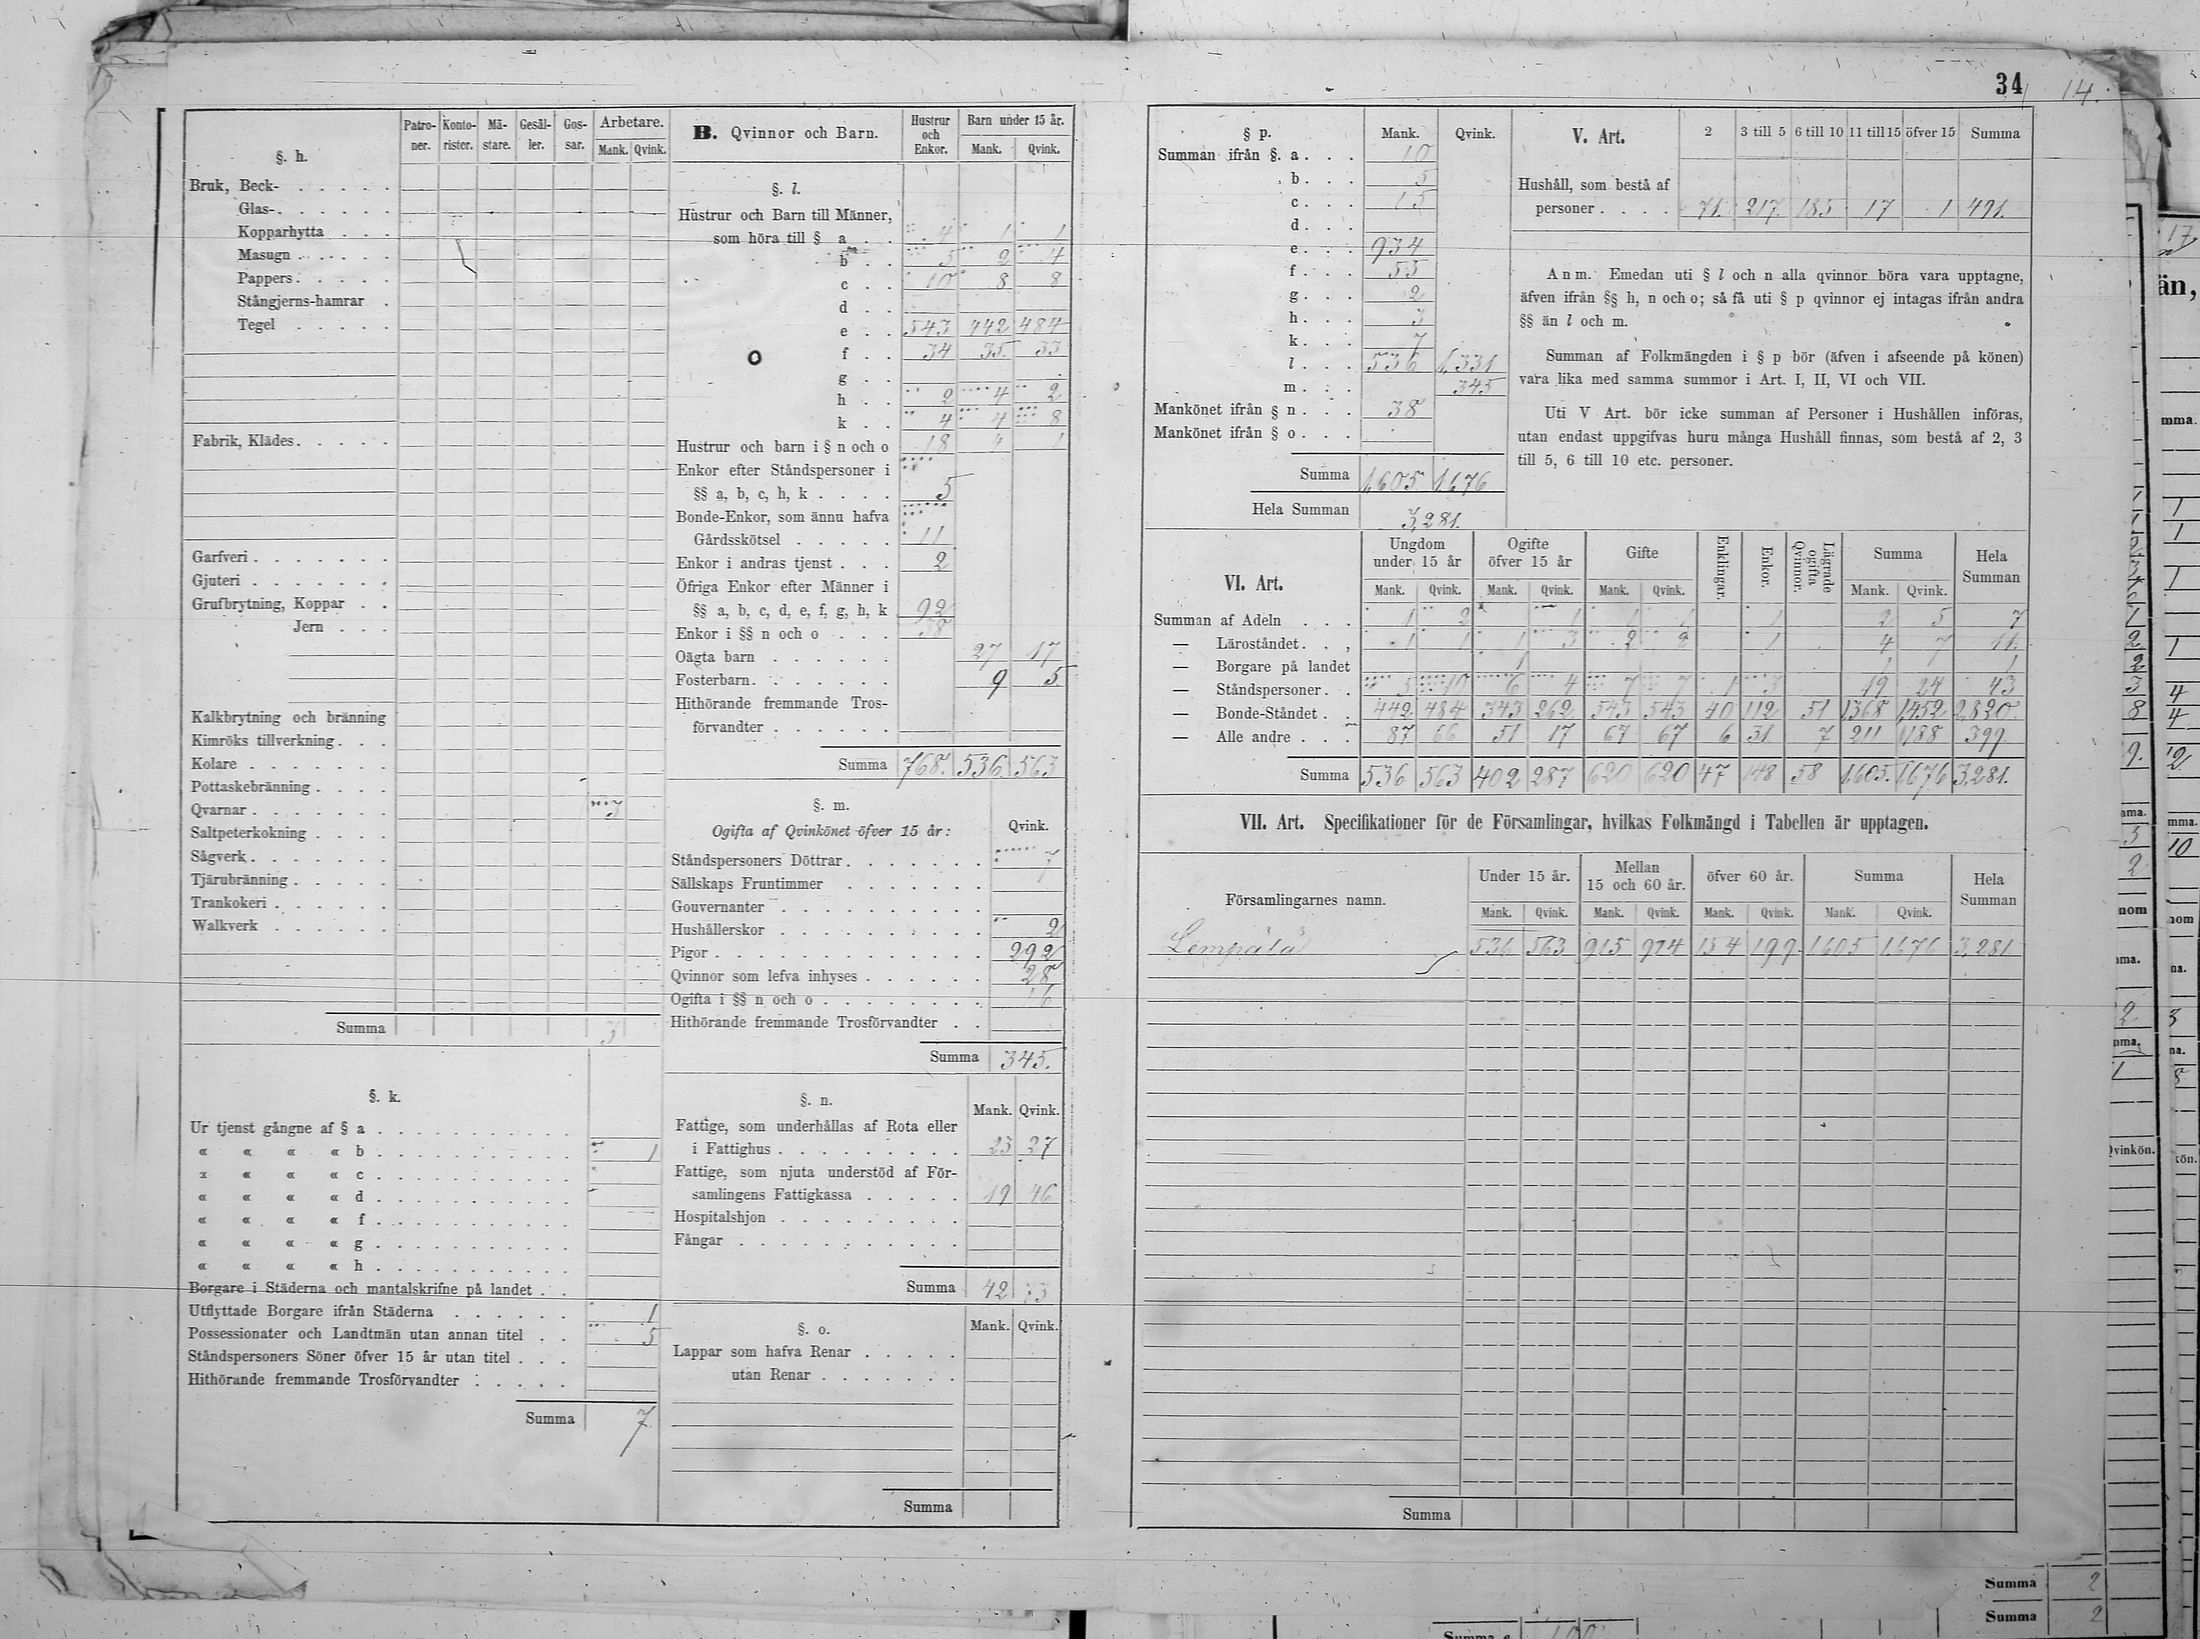 34 14.
§. h.
Patroner. Kontorister. Mästare. Gesäller. Gossar. Arbetare.
Mank. Qvink.
Bruk, Beck-
Glas-
Kopparhytta
Masugn
Pappers
Stångjerns-hamrar
Tegel
Fabrik, Klädes
Garfveri
Gjuteri
Grufbrytning, Koppar
Jern
Kalkbrytning och bränning
Kimröks tillverkning
Kolare
Pottaskebränning
Qvarnar 3
Saltpeterkokning
Sågverk
Tjärubränning
Trankokeri
Walkverk
Summa 3
§. k.
Ur tjenst gångne af § a
« « « « b 1
« « « « c
« « « « d
« « « « f
« « « « g
« « « « h
Borgare i Städerna och mantalskrifne på landet
Utflyttade Borgare ifrån Städerna 1
Possessionater och Landtmän utan annan titel 5
Ståndspersoners Söner öfver 15 år utan titel
Hithörande fremmande Trosförvandter
Summa 7
B. Qvinnor och Barn.
Hustrur och Enkor. Barn under 15 år.
Mank. Qvink.
§. l.
Hustrur och Barn till Männer,
som höra till § a 4 1 1
b 5 2 4
c 10 8 8
d
e 543 442 484
f 34 35 33
g
h 2 4 2
k 4 4 8
Hustrur och barn i § n och o 18 4 1
Enkor efter Ståndspersoner i
§§ a, b, c, h, k 5
Bonde-Enkor, som ännu hafva
Gårdsskötsel 11
Enkor i andras tjenst 2
Öfriga Enkor efter Männer i
§§ a, b, c, d, e, f, g, h, k 92
Enkor i §§ n och o 38
Oägta barn 27 17
Fosterbarn 9 5
Hithörande fremmande Trosförvandter
Summa 768. 536 563
§. m.
Ogifta af Qvinkönet öfver 15 år: Qvink.
Ståndspersoners Döttrar 7
Sällskaps Fruntimmer
Gouvernanter
Hushållerskor 2
Pigor 292
Qvinnor som lefva inhyses 28
Ogifta i §§ n och o 16
Hithörande fremmande Trosförvandter
Summa 345.
§. n.
Mank. Qvink.
Fattige, som underhållas af Rota eller
i Fattighus 23 27
Fattige, som njuta understöd af Församlingens Fattigkassa 19 46
Hospitalshjon
Fångar
Summa 42 73
§. o. Mank. Qvink.
Lappar som hafva Renar
utan Renar
Summa
§ p. Mank. Qvink.
Summan ifrån §. a 10
b 5
c 15
d
e 934
f 55
g 2
h 3
k 7
l 536 1,331
m 345
Mankönet ifrån § n 38
Mankönet ifrån § o
Summa 1,605 1,676
Hela Summan 3,281.
V. Art. 2 3 till 5 6 till 10 11 till 15 öfver 15 Summa
Hushåll, som bestå af
personer 71. 217. 185 17 1 491.
Anm. Emedan uti § l och n alla qvinnor böra vara upptagne,
äfven ifrån §§ h, n och o; så få uti § p qvinnor ej intagas ifrån andra
§§ än l och m.
Summan af Folkmängden i § p bör (äfven i afseende på könen)
vara lika med samma summor i Art. I, II, VI och VII.
Uti V Art. bör icke summan af Personer i Hushållen införas,
utan endast uppgifvas huru många Hushåll finnas, som bestå af 2, 3
till 5, 6 till 10 etc. personer.
VI. Art.
Ungdom under 15 år Ogifte öfver 15 år Gifte Enklingar. Enkor. Lägrade ogifta Qvinnor. Summa Hela Summan
Mank. Qvink. Mank. Qvink. Mank. Qvink. Mank. Qvink.
Summan af Adeln 1 2 1 1 1 1 2 5 7
— Läroståndet 1 1 1 3 2 2 1 4 7 11.
— Borgare på landet 1 1 1
— Ståndspersoner 5 10 6 4 7 7 1 3 19 24 43
— Bonde-Ståndet 442 484 343 262 543 543 40 112 51 1368 1,452 2,820.
— Alle andre 87 66 51 17 67 67 6 31 7 211 188 399.
Summa 536 563 402 287 620 620 47 148 58 1,605. 1,676 3,281.
VII. Art. Specifikationer för de Församlingar, hvilkas Folkmängd i Tabellen är upptagen.
Församlingarnes namn. Under 15 år. Mellan 15 och 60 år. öfver 60 år. Summa Hela Summan
Mank. Qvink. Mank. Qvink. Mank. Qvink. Mank. Qvink.
Lempälä 536 563 915 914 154 199 1605 1,676 3,281
Summa
Summa 2
Summa 2